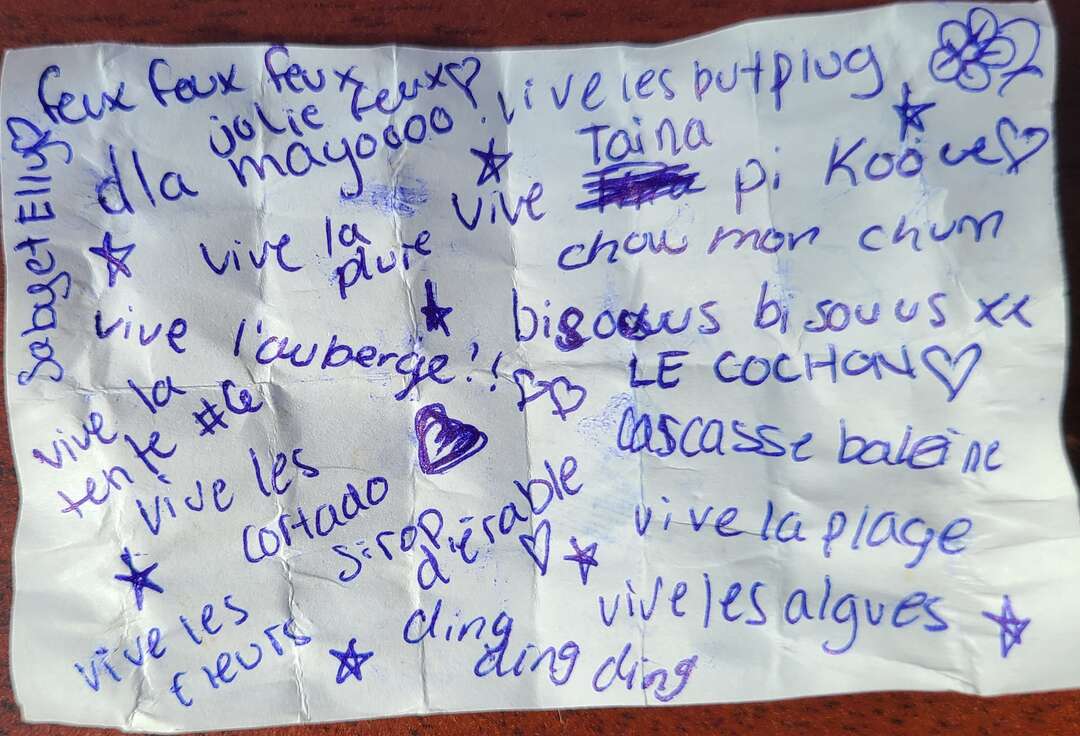 feux feux feux feux
jolie
dla mayoooo
vive la pluie
vive l'auberge!!
vive la
tente #Ce
vive les
cortado
sirop
d'iérable
vive les
fleurs
ding
ding ding
Sabay et Elly
vive les butplug
Taina
vive pi Koove
chow mon chum
bisouus bisouus xx
LE COCHON
cascasse baleine
vive la plage
vive les algues